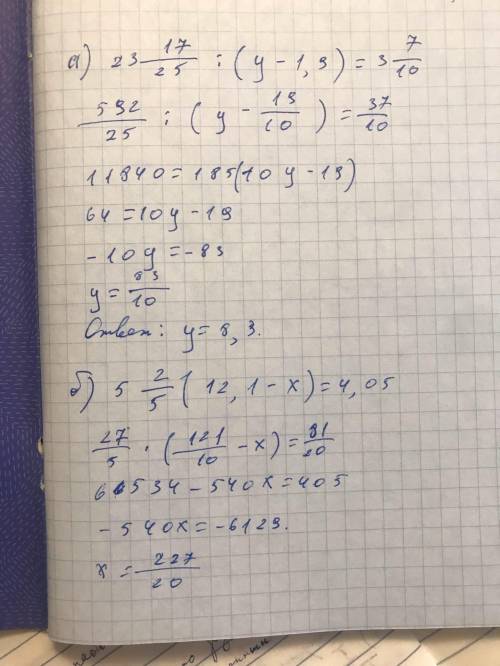 а) 23 17/25 : (y - 1,9) = 3 7/10
592/25 : (y - 19/10) = 37/10
11840 = 185(10y - 19)
64 = 10y - 19
-10y = -83
y = 83/10
Ответ: y = 8,3.
б) 5 2/5 (12,1 - x) = 4,05
27/5 · (121/10 - x) = 81/20
6534 - 540x = 405
-540x = -6129.
x = 227/20